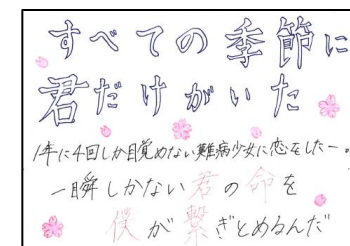 すべての季節に
君だけがいた
1年に4回しか目覚めない難病少女に恋をした―。
一瞬しかない君の命を
僕が繋ぎとめるんだ